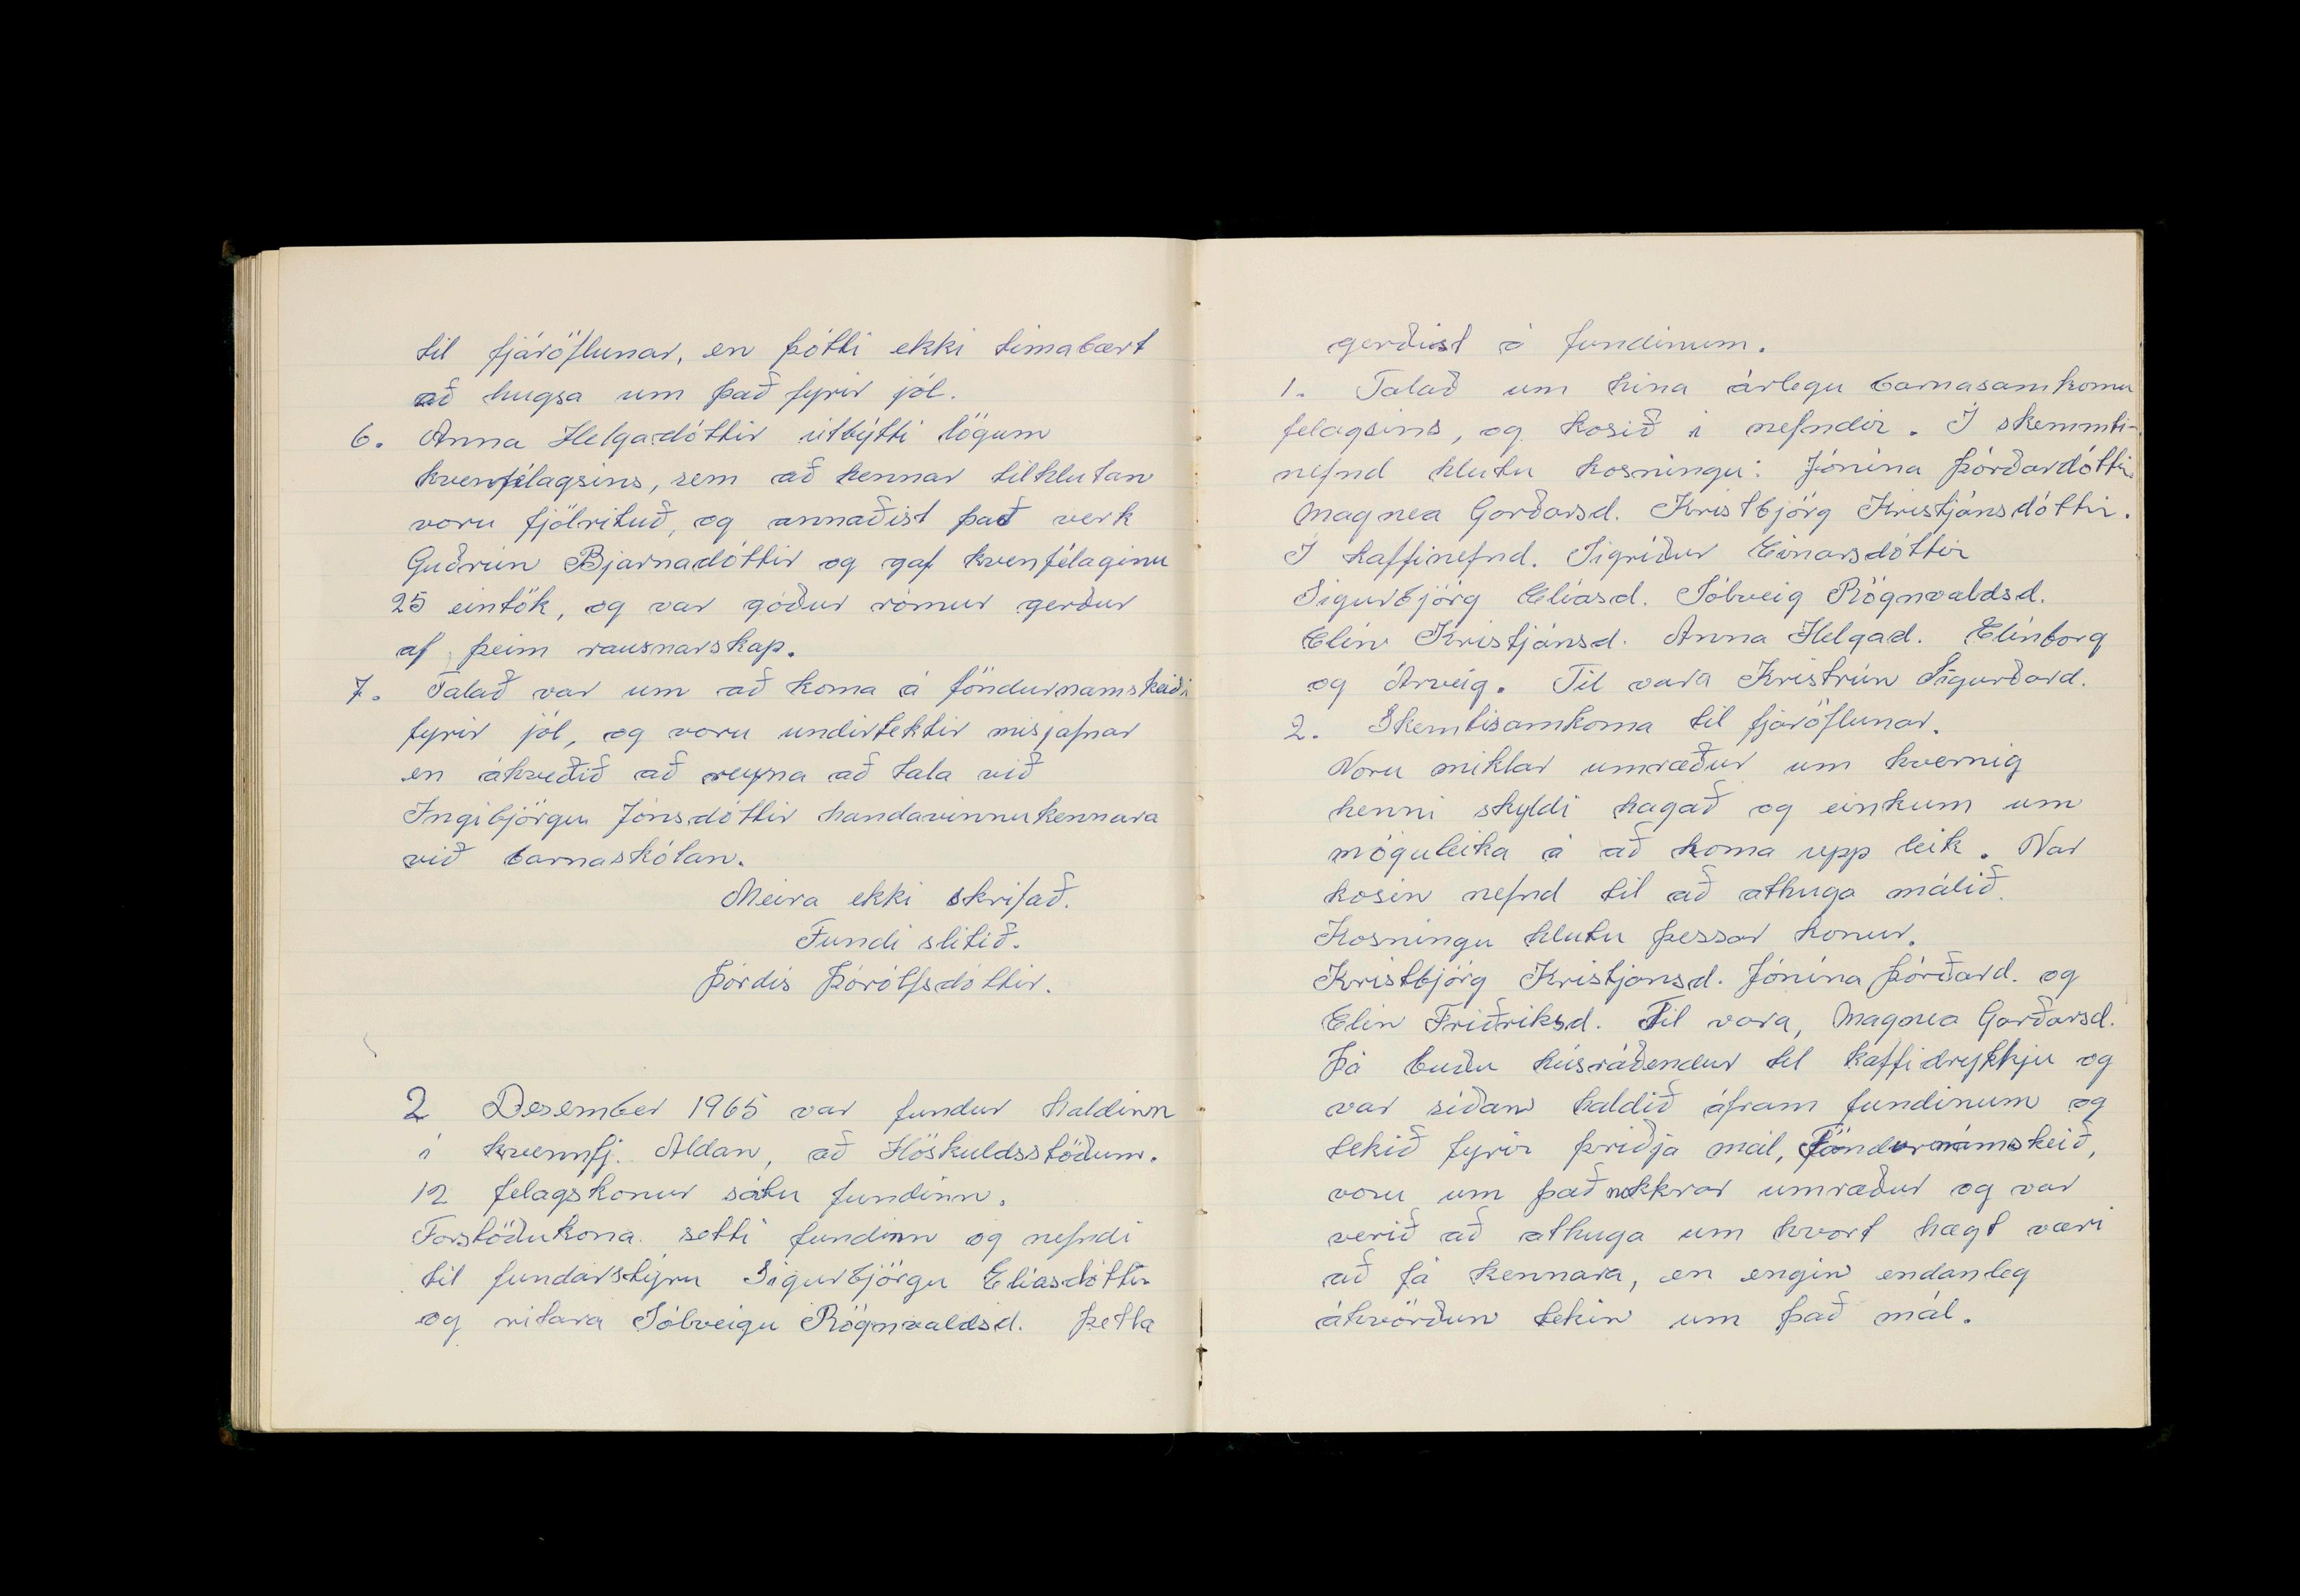 til fjáröflunar, en þótti ekki timabært
að hugsa um það fyrir jól.
6. Anna Helgadóttir útbýtti lögum
kvenfélagsins, sem að hennar tilhlutan
voru fjölrituð, og annaðist það verk
Guðrún Bjarnadóttir og gaf kvenfélaginu
25 eintök, og var góður rómur gerður
af þeim rausnarskap.
7. Talað var um að koma á föndurnamskeiði
fyrir jól, og voru undirtektir misjafnar
en ákveðið að reyna að tala við
Ingibjörgu Jónsdóttir handavinnukennara
við barnaskólan.
Meira ekki skrifað.
Fundi slitið.
Þórdís Þórólfsdóttir.
2 Desember 1965 var fundur haldinn
í kvennfj. Aldan, að Höskuldsstöðum.
12 felagskonur sátu fundinn.
Forstöðukona setti fundinn og nefndi
til fundarstýru Sigurbjörgu Elíasdóttir
og ritara Sólveigu Rögnvaldsd. Þetta
gerðist á fundinum.
1. Talað um hina árlegu barnasamkomu
felagsins, og kosið i nefndir. Í skemmti-
nefnd hlutu kosningu: Jónína Þórðardóttir
Magnea Garðarsd. Kristbjörg Kristjánsdóttir.
Í kaffinefnd. Sigríður Einarsdóttir
Sigurbjörg Elíasd. Sólveig Rögnvaldsd.
Elín Kristjánsd. Anna Helgad. Elínborg
og Árveig. Til vara Kristrún Sigurðard.
2. Skemtisamkoma til fjáröflunar.
Voru miklar umræður um hvernig
henni skyldi hagað og einkum um
möguleika á að koma upp leik. Var
kosin nefnd til að athuga málið.
Kosningu hlutu þessar konur.
Kristbjörg Kristjansd. Jónína Þórðard. og
Elín Friðriksd. Til vara, Magnea Garðarsd.
Þá buðu húsráðendur til kaffidrykkju og
var síðan haldið áfram fundinum og
tekið fyrir þriðja mál, föndurnámskeið,
voru um það nokkrar umræður og var
verið að athuga um hvort hægt væri
að fá kennara, en engin endanleg
ákvörðun tekin um það mál.